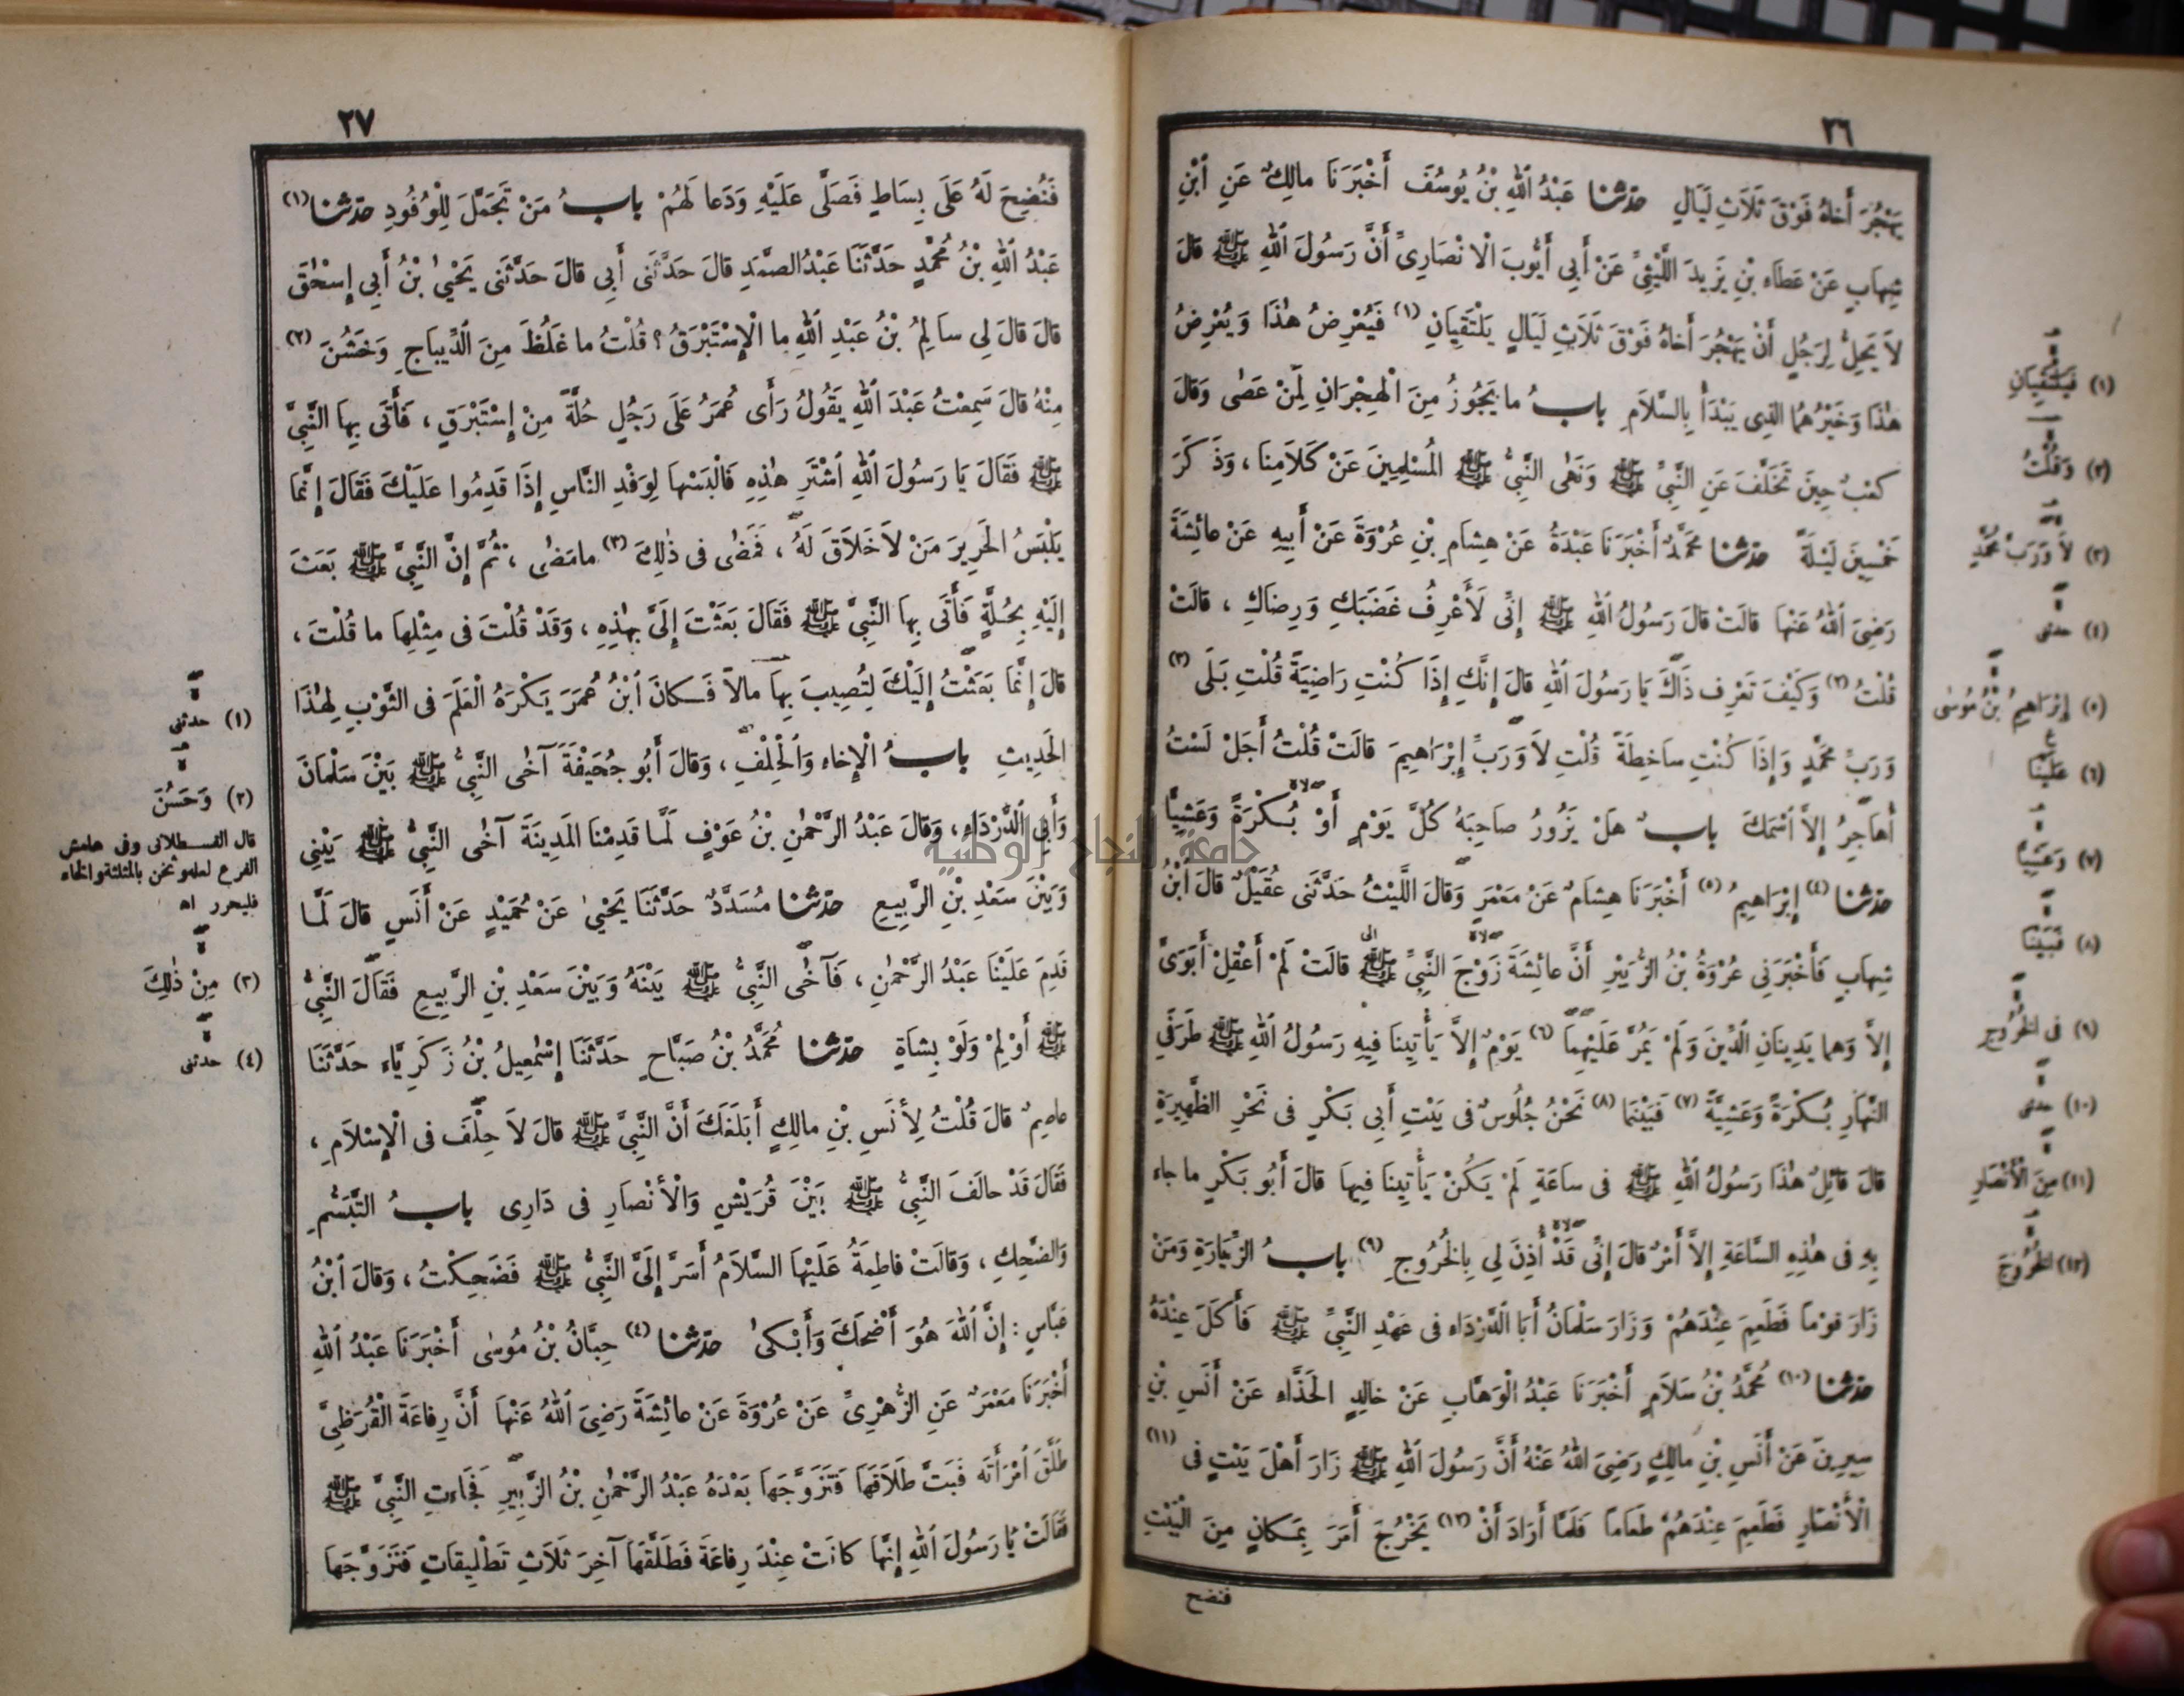 ٢٦
يَهْجُرَ أَخَاهُ فَوْقَ ثَلَاثِ لَيَالٍ حدثنا عَبْدُ اللهِ بْنُ يُوسُفَ أَخْبَرَنَا مالِكٌ عَنِ ابْنِ
شِهَابٍ عَنْ عَطَاءِ بْنِ يَزِيدَ اللَّيْثِيِّ عَنْ أَبِي أَيُّوبَ الْأَنْصَارِيِّ أَنَّ رَسُولَ اللهِ ﷺ قالَ
لاَ يَحِلُّ لِرَجُلٍ أَنْ يَهْجُرَ أَخاهُ فَوْقَ ثَلَاثِ لَيَالٍ يَلْتَقِيَانِ (١) فَيُعْرِضُ هٰذَا وَيُعْرِضُ
هٰذَا وَخَيْرُهُمَا الذِى يَبْدَأُ بِالسَّلاَمِ بابُ ما يَجُوزُ مِنَ الْهِجْرَانِ لِمَنْ عَصٰى وَقالَ
كَعْبٌ حِينَ تَخَلَّفَ عَنِ النَّبِيِّ ﷺ وَنَهَى النَّبِيُّ ﷺ المُسْلِمِينَ عَنْ كَلَامِنَا ، وَذَكَرَ
خَمْسِينَ لَيْلَةً حدثنا مُحَمَّدٌ أَخْبَرَنَا عَبْدَةُ عَنْ هِشَامِ بْنِ عُرْوَةَ عَنْ أَبِيهِ عَنْ عائِشَةَ
رَضِيَ اللهُ عَنْهَا قالَتْ قالَ رَسُولُ اللهِ ﷺ إِنِّى لَأَعْرِفُ غَضَبَكِ وَرِضَاكِ ، قالَتْ
قُلْتُ (٢) وَكَيْفَ تَعْرِفُ ذَاكَ يَا رَسُولَ اللهِ قالَ إِنَّكِ إِذَا كُنْتِ رَاضِيَةً قُلْتِ بَلَى (٣)
وَرَبِّ مُحَمَّدٍ وَإِذَا كُنْتِ سَاخِطَةً قُلْتِ لاَ وَرَبِّ إِبْرَاهِيمَ قالَتْ قُلْتُ أَجَلْ لَسْتُ
أُهَاجِرُ إِلاَّ اسْمَكَ بابٌ هَلْ يَزُورُ صَاحِبَهُ كُلَّ يَوْمٍ أَوْ بُكْرَةً وَعَشِيًّا
حدثنا (٤) إِبْرَاهِيمُ (٥) أَخْبَرَنَا هِشَامٌ عَنْ مَعْمَرٍ وَقالَ اللَّيْثُ حَدَّثَنِى عُقَيْلٌ قالَ ابْنُ
شِهَابٍ فَأَخْبَرَنِى عُرْوَةُ بْنُ الزُّبَيْرِ أَنَّ عائِشَةَ زَوْجَ النَّبِيِّ ﷺ قالَتْ لَمْ أَعْقِلْ أَبَوَىَّ
إِلاَّ وَهُما يَدِينَانِ الدِّينَ وَلَمْ يَمُرَّ عَلَيْهِمَا (٦) يَوْمٌ إِلاَّ يَأْتِينَا فِيهِ رَسُولُ اللهِ ﷺ طَرَفَيِ
النَّهَارِ بُكْرَةً وَعَشِيَّةً (٧) فَبَيْنَمَا (٨) نَحْنُ جُلُوسٌ فى بَيْتِ أَبِي بَكْرٍ فى نَحْرِ الظَّهِيرَةِ
قالَ قائِلٌ هٰذَا رَسُولُ اللهِ ﷺ فى ساعَةٍ لَمْ يَكُنْ يَأْتِينَا فِيهَا قالَ أَبُو بَكْرٍ ما جاءَ
بِهِ فى هٰذِهِ السَّاعَةِ إِلاَّ أَمْرٌ قالَ إِنِّى قَدْ أُذِنَ لِي بِالْخُرُوجِ (٩) بابُ الزِّيَارَةِ وَمَنْ
زَارَ قَوْماً فَطَعِمَ عِنْدَهُمْ وَزَارَ سَلْمَانُ أَبَا الدَّرْدَاءِ فى عَهْدِ النَّبِيِّ ﷺ فَأَكَلَ عِنْدَهُ
حدثنا (١٠) مُحَمَّدُ بْنُ سَلَامٍ أَخْبَرَنَا عَبْدُ الْوَهَّابِ عَنْ خالِدٍ الحَذَّاءِ عَنْ أَنَسِ بْنِ
سِيرِينَ عَنْ أَنَسِ بْنِ مالِكٍ رَضِيَ اللهُ عَنْهُ أَنَّ رَسُولَ اللهِ ﷺ زَارَ أَهْلَ بَيْتٍ فى (١١)
الْأَنْصَارِ فَطَعِمَ عِنْدَهُمْ طَعَاماً فَلَمَّا أَرَادَ أَنْ (١٢) يَخْرُجَ أَمَرَ بِمَكَانٍ مِنَ الْبَيْتِ
فنضح
(١) فَيَلْتَقِيَانِ
(٢) وَقُلْتُ
(٣) لاَ وَرَبِّ مُحَمَّدٍ
(٤) حدثنى
(٥) إِبْرَاهِيمُ بْنُ مُوسٰى
(٦) عَلَيْنَا
(٧) وَعَشِيًّا
(٨) فَبَيْنَا
(٩) فى الخُرُوجِ
(١٠) حدثنى
(١١) مِنَ الْأَنْصَارِ
(١٢) الخُرُوجَ
٢٧
فَنُضِحَ لَهُ عَلَى بِسَاطٍ فَصَلَّى عَلَيْهِ وَدَعا لَهُمْ بابُ مَنْ تَجَمَّلَ لِلْوُفُودِ حدثنا (١)
عَبْدُ اللهِ بْنُ مُحَمَّدٍ حَدَّثَنَا عَبْدُ الصَّمَدِ قالَ حَدَّثَنِى أَبِى قالَ حَدَّثَنِى يَحْيىٰ بْنُ أَبِي إِسْحٰقَ
قالَ قالَ لِي سالِمُ بْنُ عَبْدِ اللهِ ما الْإِسْتَبْرَقُ ؟ قُلْتُ ما غَلُظَ مِنَ الدِّيباجِ وَخَشُنَ (٢)
مِنْهُ قالَ سَمِعْتُ عَبْدَ اللهِ يَقُولُ رَأَى عُمَرُ عَلَى رَجُلٍ حُلَّةً مِنْ إِسْتَبْرَقٍ ، فَأَتَى بِهَا النَّبِيَّ
ﷺ فَقَالَ يَا رَسُولَ اللهِ اشْتَرِ هٰذِهِ فَالْبَسْهَا لِوَفْدِ النَّاسِ إِذَا قَدِمُوا عَلَيْكَ فَقَالَ إِنَّمَا
يَلْبَسُ الحَرِيرَ مَنْ لاَ خَلَاقَ لَهُ ، فَمَضٰى فى ذٰلِكَ (٣) مامَضٰى ، ثُمَّ إِنَّ النَّبِيَّ ﷺ بَعَثَ
إِلَيْهِ بِحُلَّةٍ فَأَتَى بِهَا النَّبِيَّ ﷺ فَقَالَ بَعَثْتَ إِلَىَّ بِهٰذِهِ ، وَقَدْ قُلْتَ فى مِثْلِهَا ما قُلْتَ ،
قالَ إِنَّمَا بَعَثْتُ إِلَيْكَ لِتُصِيبَ بِهَا مالاً فَكانَ ابْنُ عُمَرَ يَكْرَهُ الْعَلَمَ فى الثَّوْبِ لِهٰذَا
الحَدِيثِ بابُ الْإِخاءِ وَالْحِلْفِ ، وَقالَ أَبُو جُحَيْفَةَ آخٰى النَّبِيُّ ﷺ بَيْنَ سَلْمَانَ
وَأَبِي الدَّرْدَاءِ ، وَقالَ عَبْدُ الرَّحْمٰنِ بْنُ عَوْفٍ لَمَّا قَدِمْنَا المَدِينَةَ آخٰى النَّبِيُّ ﷺ بَيْنِى
وَبَيْنَ سَعْدِ بْنِ الرَّبِيعِ حدثنا مُسَدَّدٌ حَدَّثَنَا يَحْيىٰ عَنْ حُمَيْدٍ عَنْ أَنَسٍ قالَ لَمَّا
قَدِمَ عَلَيْنَا عَبْدُ الرَّحْمٰنِ ، فَآخٰى النَّبِيُّ ﷺ بَيْنَهُ وَبَيْنَ سَعْدِ بْنِ الرَّبِيعِ فَقَالَ النَّبِيُّ
ﷺ أَوْلِمْ وَلَوْ بِشاةٍ حدثنا مُحَمَّدُ بْنُ صَبَّاحٍ حَدَّثَنَا إِسْمٰعِيلُ بْنُ زَكَرِيَّاءَ حَدَّثَنَا
عاصِمٌ قالَ قُلْتُ لِأَنَسِ بْنِ مالِكٍ أَبَلَغَكَ أَنَّ النَّبِيَّ ﷺ قالَ لاَ حِلْفَ فى الْإِسْلَامِ ،
فَقَالَ قَدْ حالَفَ النَّبِيُّ ﷺ بَيْنَ قُرَيْشٍ وَالْأَنْصَارِ فى دَارِى بابُ التَّبَسُّمِ
وَالضَّحِكِ ، وَقالَتْ فاطِمَةُ عَلَيْهَا السَّلَامُ أَسَرَّ إِلَىَّ النَّبِيُّ ﷺ فَضَحِكْتُ ، وَقالَ ابْنُ
عَبَّاسٍ : إِنَّ اللهَ هُوَ أَضْحَكَ وَأَبْكىٰ حدثنا (٤) حِبَّانُ بْنُ مُوسٰى أَخْبَرَنَا عَبْدُ اللهِ
أَخْبَرَنَا مَعْمَرٌ عَنِ الزُّهْرِىِّ عَنْ عُرْوَةَ عَنْ عائِشَةَ رَضِيَ اللهُ عَنْهَا أَنَّ رِفاعَةَ الْقُرَظِىَّ
طَلَّقَ امْرَأَتَهُ فَبَتَّ طَلَاقَهَا فَتَزَوَّجَهَا بَعْدَهُ عَبْدُ الرَّحْمٰنِ بْنُ الزَّبِيرِ فَجَاءَتِ النَّبِيَّ ﷺ
فَقَالَتْ يَا رَسُولَ اللهِ إِنَّهَا كانَتْ عِنْدَ رِفاعَةَ فَطَلَّقَهَا آخِرَ ثَلَاثِ تَطْلِيقَاتٍ فَتَزَوَّجَهَا
(١) حدثنى
(٢) وَحَسُنَ
قال القسطلانى وفى هامش
الفرع لعله وثخن بالمثلثة والخاء
فليحرر اه
(٣) مِنْ ذٰلِكَ
(٤) حدثنى
جامعة النجاح الوطنية